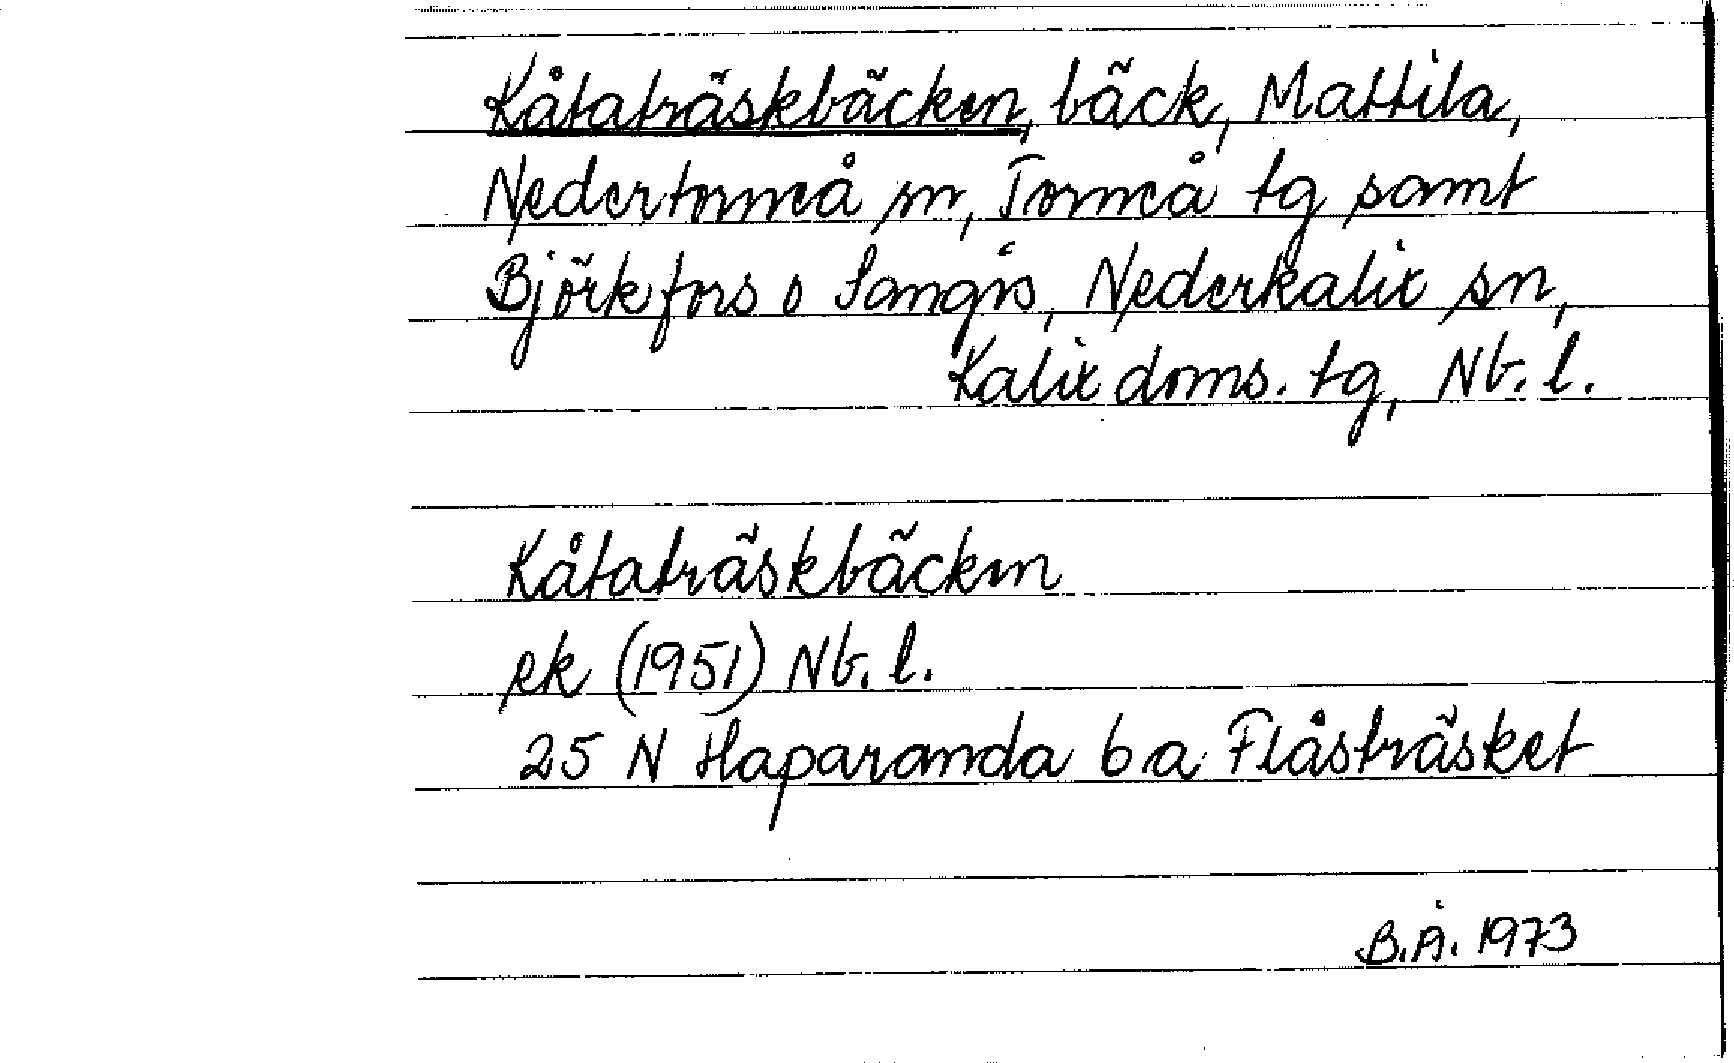 Kåtaträskbäcken, bäck, Mattila,
Nedertorneå sn, Torneå tg samt
Björkfors o Sangis, Nederkalix sn,
Kalix doms. tg, Nb. l.
Kåtaträskbäcken
ek (1951) Nb. l.
25 N Haparanda 6 a Flåsträsket
B.Å. 1973